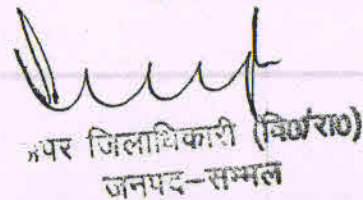 अपर जिलाधिकारी (वि0/रा0)
जनपद-सम्भल